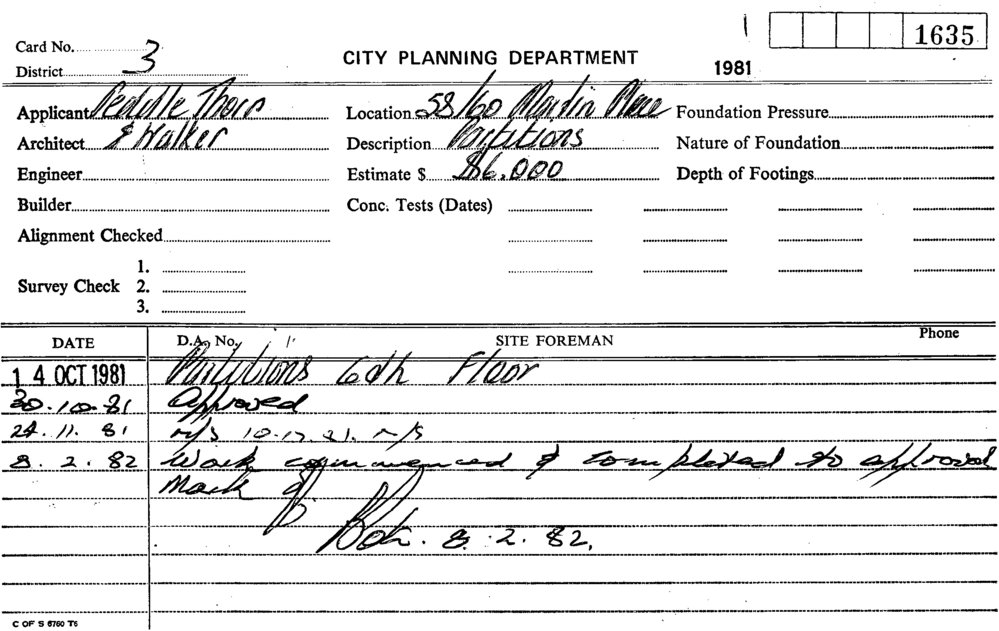 1635
Card No. 3
District
CITY PLANNING DEPARTMENT
1981
Applicant Peddle Thorp
Location 58/60 Martin Place
Foundation Pressure
Architect & Walker
Description Partitions
Nature of Foundation
Engineer
Estimate $ $6.000
Depth of Footings
Builder
Conc. Tests (Dates)
Alignment Checked
1.
Survey Check 2.
3.
DATE D.A. No. SITE FOREMAN Phone
14 OCT 1981 Partitions 6th Floor
30.10.81 Approved
24.11.81 n/s n/s
8.2.82 Work commenced & completed to approval
8.2.82.
C OF S 6760 T6